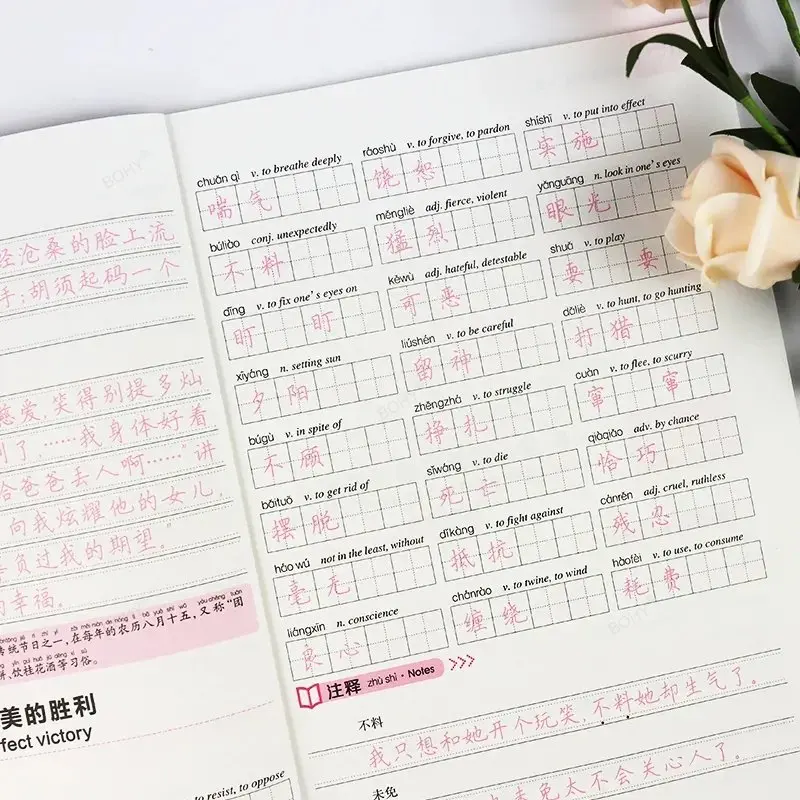 经沧桑的脸上流
手;胡须起码一个
慈爱,笑得别提多灿
到了……我身体好着
给爸爸丢人啊……”讲
向我炫耀他的女儿,
负过我的期望。”
的幸福。
统节日之一,在每年的农历八月十五,又称“团
饼、饮桂花酒等习俗。
美的胜利
fect victory
to resist, to oppose
chuǎn qì v. to breathe deeply
喘气
ráoshù v. to forgive, to pardon
饶恕
shíshī v. to put into effect
实施
búliào conj. unexpectedly
不料
měngliè adj. fierce, violent
猛烈
yǎnguāng n. look in one's eyes
眼光
dīng v. to fix one's eyes on
盯 盯
kěwù adj. hateful, detestable
可恶
shuǎ v. to play
耍 耍
xīyáng n. setting sun
夕阳
liúshén v. to be careful
留神
dǎliè v. to hunt, to go hunting
打猎
búgù v. in spite of
不顾
zhēngzhá v. to struggle
挣扎
cuàn v. to flee, to scurry
窜 窜
bǎituō v. to get rid of
摆脱
sǐwáng v. to die
死亡
qiàqiǎo adv. by chance
恰巧
háo wú not in the least, without
毫无
dǐkàng v. to fight against
抵抗
cánrěn adj. cruel, ruthless
残忍
liángxīn n. conscience
良心
chánrào v. to twine, to wind
缠绕
hàofèi v. to use, to consume
耗费
注释 zhù shì · Notes
不料
我只想和她开个玩笑,不料她却生气了。
未免
未免太不会关心人了。